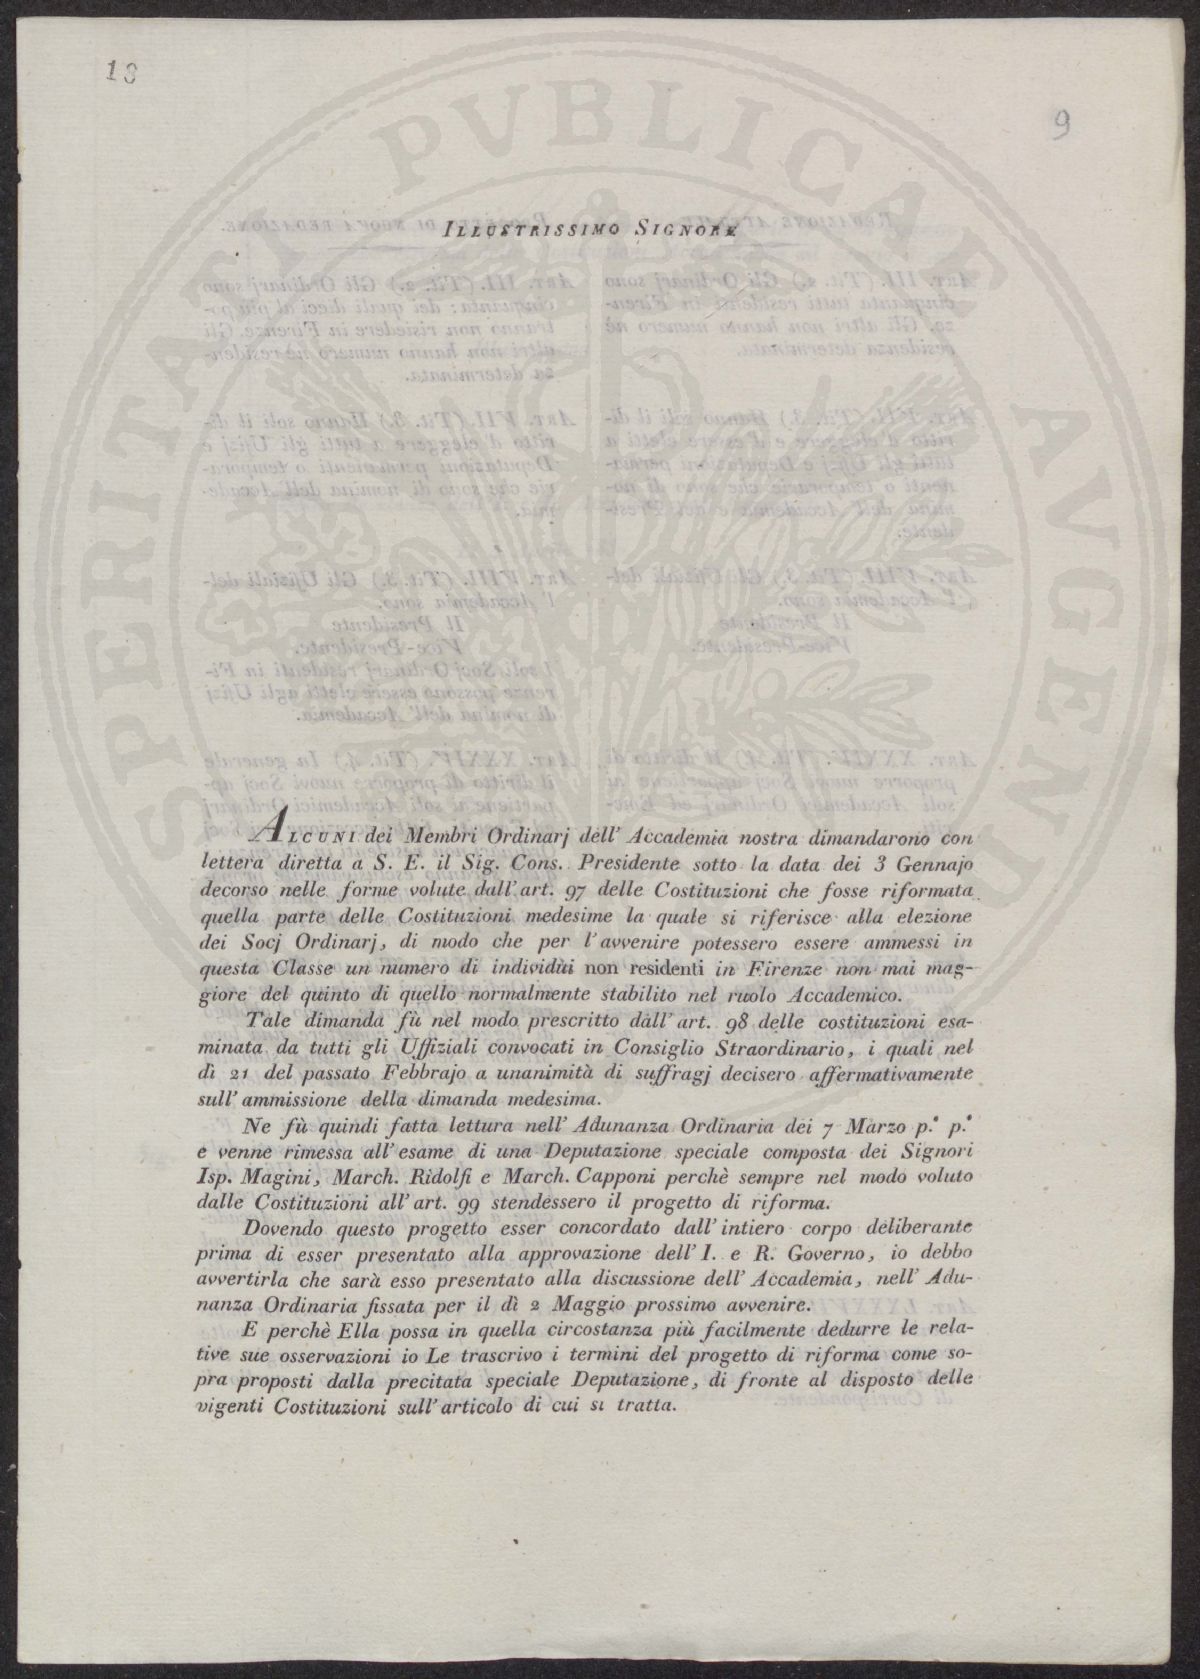 18
9
PVBLICAE AVGENDO
SPERITATI
ILLUSTRISSIMO SIGNORE
ALCUNI dei Membri Ordinarj dell' Accademia nostra dimandarono con
lettera diretta a S. E. il Sig. Cons. Presidente sotto la data dei 3 Gennajo
decorso nelle forme volute dall'art. 97 delle Costituzioni che fosse riformata
quella parte delle Costituzioni medesime la quale si riferisce alla elezione
dei Socj Ordinarj, di modo che per l'avvenire potessero essere ammessi in
questa Classe un numero di individùi non residenti in Firenze non mai mag-
giore del quinto di quello normalmente stabilito nel ruolo Accademico.
Tale dimanda fù nel modo prescritto dall'art. 98 delle costituzioni esa-
minata da tutti gli Uffiziali convocati in Consiglio Straordinario, i quali nel
dì 21 del passato Febbrajo a unanimità di suffragj decisero affermativamente
sull'ammissione della dimanda medesima.
Ne fù quindi fatta lettura nell' Adunanza Ordinaria dei 7 Marzo p.° p.°
e venne rimessa all'esame di una Deputazione speciale composta dei Signori
Isp. Magini, March. Ridolfi e March. Capponi perchè sempre nel modo voluto
dalle Costituzioni all'art. 99 stendessero il progetto di riforma.
Dovendo questo progetto esser concordato dall'intiero corpo deliberante
prima di esser presentato alla approvazione dell' I. e R. Governo, io debbo
avvertirla che sarà esso presentato alla discussione dell' Accademia, nell' Adu-
nanza Ordinaria fissata per il dì 2 Maggio prossimo avvenire.
E perchè Ella possa in quella circostanza più facilmente dedurre le rela-
tive sue osservazioni io Le trascrivo i termini del progetto di riforma come so-
pra proposti dalla precitata speciale Deputazione, di fronte al disposto delle
vigenti Costituzioni sull'articolo di cui si tratta.